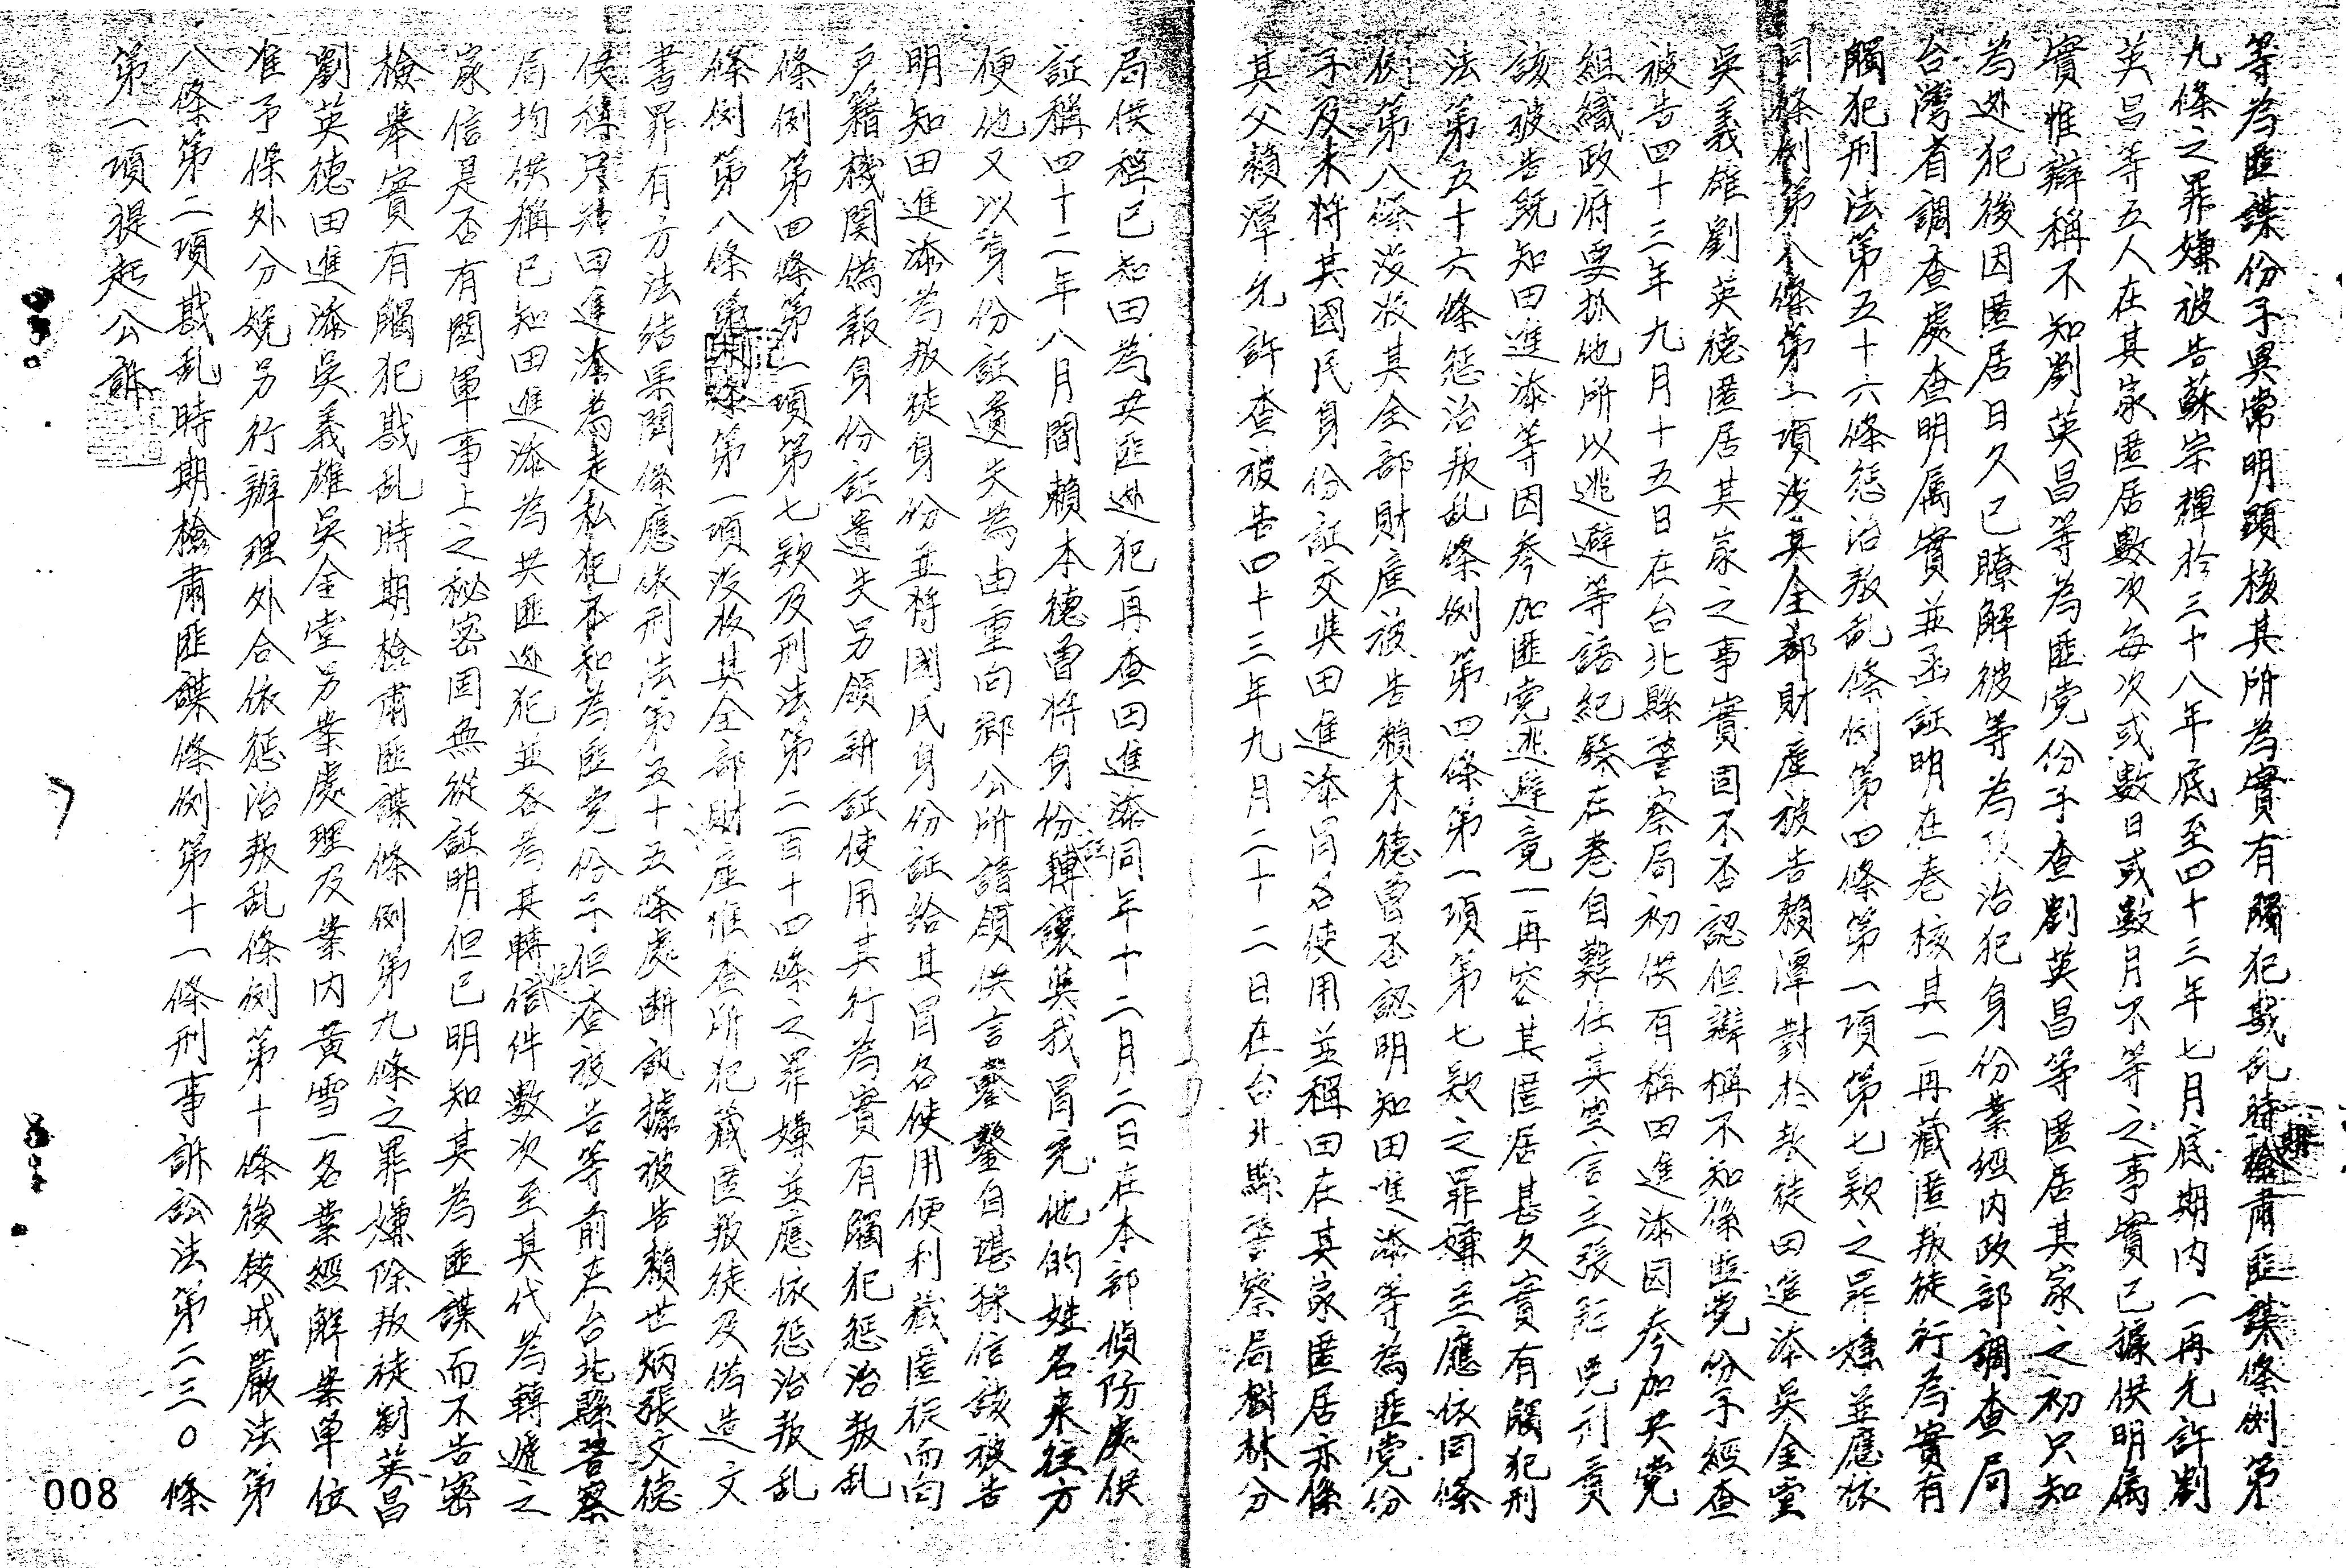 等為匪諜份子異常明顯核其所為實有觸犯戡乱時期檢肅匪諜條例第
九條之罪嫌被告蘇崇輝於三十八年底至四十三年七月底期內一再允許劉
英昌等五人在其家匿居數次每次或數日或數月不等之事實已據供明屬
實惟辯稱不知劉英昌等為匪党份子查劉英昌等匿居其家之初只知
為逃犯後因匿居日久已瞭解彼等為政治犯身份業經內政部調查局
台灣省調查處查明属實並函証明在卷核其一再藏匿叛徒行為實有
觸犯刑法第五十六條惩治叛乱條例第四條第一項第七款之罪嫌並應依
同條例第八條第一項沒其全部財產被告賴潭對於叛徒田進添吳金堂
吳義雄劉英德匿居其家之事實固不否認但辯稱不知係匪党份子經查
被告四十三年九月十五日在台北縣警察局初供有稱田進添因参加共党
組織政府要抓他所以逃避等語紀錄在卷自難任其空言主張冠免刑責
該被告既知田進添等因参加匪党逃避竟一再容其匿居甚久實有觸犯刑
法第五十六條惩治叛乱條例第四條第一項第七款之罪嫌並應依同條
例第八條沒收其全部財產被告賴木德曾否認明知田進添等為匪党份
子及未將其國民身份証交與田進添冒名使用並稱田在其家匿居亦係
其父賴潭允許查被告四十三年九月二十二日在台北縣警察局樹林分
局供稱已知田為共匪逃犯再查田進添同年十二月二日在本部偵防處供
証稱四十二年八月間賴本德曾將身份証轉讓與我冒充他的姓名來往方
便他又以身份証遺失為由重向鄉公所請領供言鑿鑿自堪採信該被告
明知田進添為叛徒身份並將國民身份証給其冒名使用便利藏匿從而向
戶籍機関偽報身份証遺失另領新証使用其行為實有觸犯惩治叛乱
條例第四條第一項第七款及刑法第二百十四條之罪嫌並應依惩治叛乱
條例第八條第一項沒收其全部財產惟查所犯藏匿叛徒及偽造文
書罪有方法結果関係應依刑法第五十五條處断訊據被告賴世炳張文德
供稱只知田進添為走私犯不知為匪党份子但查被告等前在台北縣警察
局均供稱已知田進添為共匪逃犯並各為其轉信件數次至其代為轉遞之
家信是否有関軍事上之秘密固無從証明但已明知其為匪諜而不告密
檢舉實有觸犯戡乱時期檢肅匪諜條例第九條之罪嫌除叛徒劉英昌
劉英德田進添吳義雄吳金堂另案處理及案內黃雪一名業經解案單位
准予保外分娩另行辦理外合依惩治叛乱條例第十條後段戒嚴法第
八條第二項戡乱時期檢肅匪諜條例第十一條刑事訴訟法第二三〇條
第一項提起公訴
008